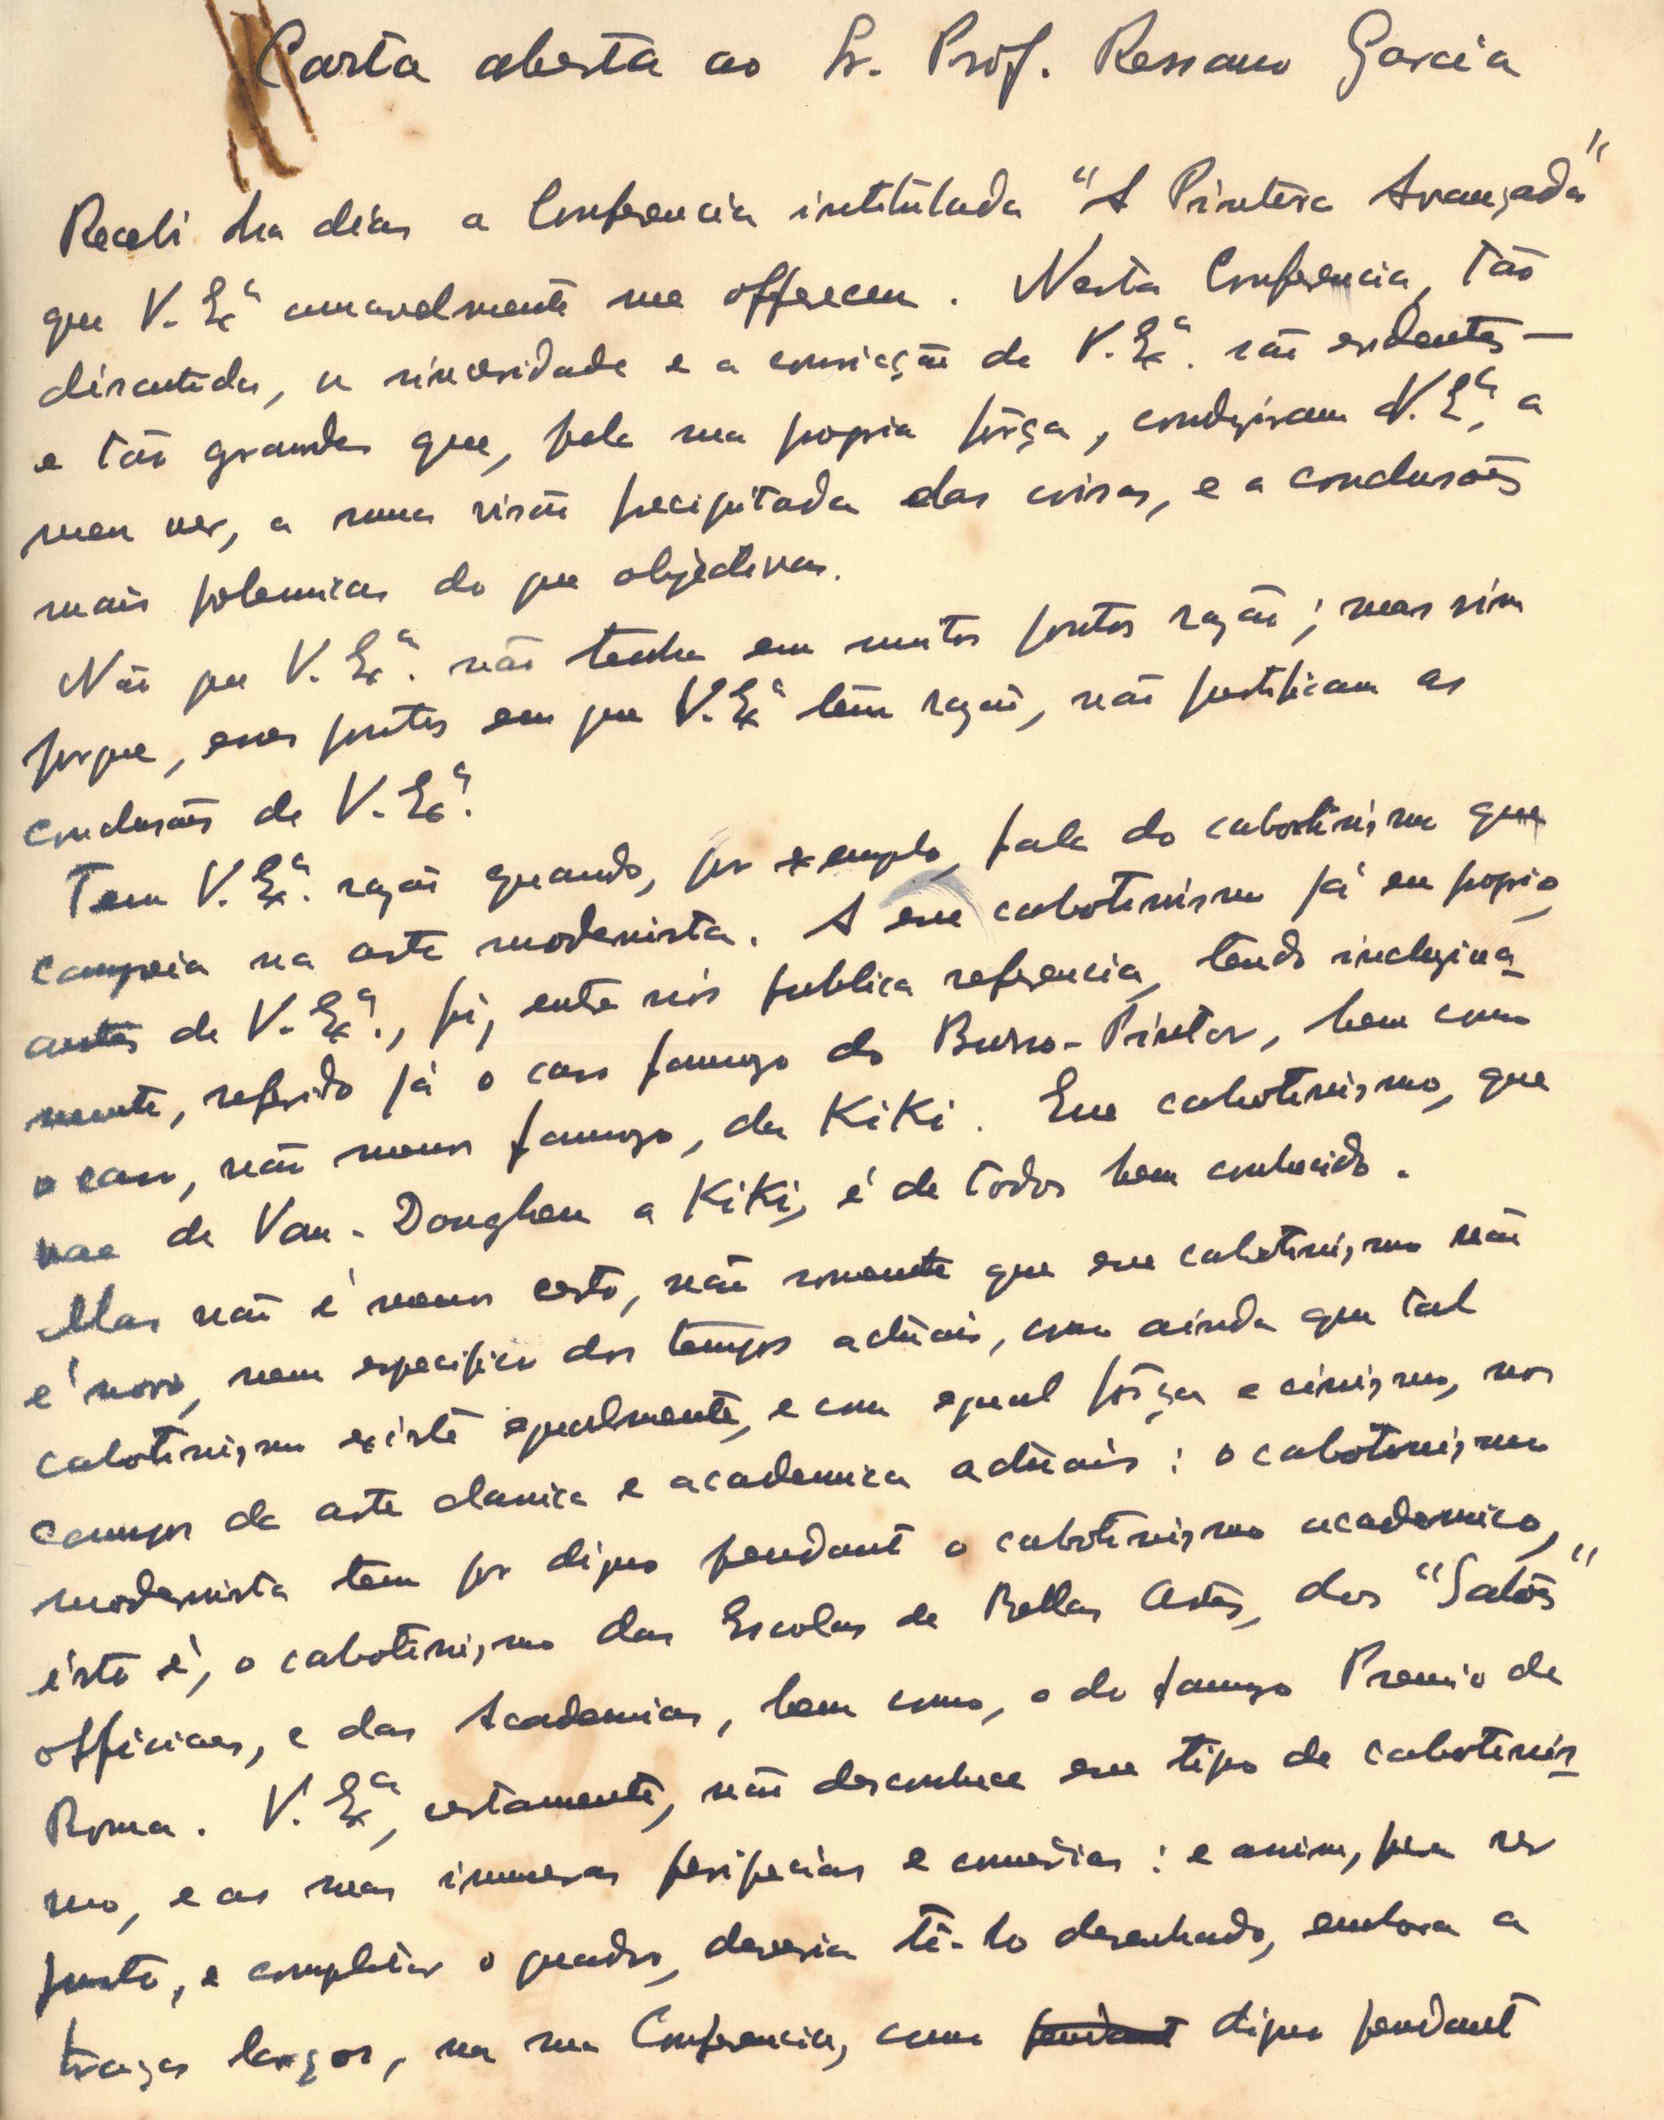 Carta aberta ao Sr. Prof. Ressano Garcia
Recebi ha dias a Conferencia intitulada "A Pintura Avançada"
que V. Exª amavelmente me offereceu. Nesta Conferencia, tão
discutida, a sinceridade e a convicção de V. Exª. são evidentes —
e tão grandes que, pela sua propria fôrça, conduziram V. Exª, a
meu ver, a uma visão precipitada das coisas, e a conclusões
mais polemicas do que objectivas.
Não que V. Exª. não tenha em muitos pontos razão; mas sim
porque, esses pontos em que V. Exª têm razão, não justificam as
conclusões de V. Exª.
Tem V. Exª. razão quando, por exemplo, fala do cabotinismo que
campeia na arte modernista. A esse cabotinismo já eu proprio,
antes de V. Exª., fiz, entre nós publica referencia, tendo incluziva-
mente, referido já o caso famozo do Burro-Pintor, bem como
o caso, não menos famozo, da Kiki. Esse cabotinismo, que
vae de Van-Donghen a Kiki, é de todos bem conhecido.
Mas não é menos certo, não somente que esse cabotinismo não
é novo, nem especifico dos tempos actuais, como ainda que tal
cabotinismo existe egualmente, e com egual fôrça e cinismo, nos
campos da arte classica e academica actuais: o cabotinismo
modernista tem por digno pendant o cabotinismo academico,
isto é, o cabotinismo das Escolas de Bellas Artes, dos "Salões"
officiaes, e das Academias, bem como, o do famozo Premio de
Roma. V. Exª, certamente, não desconhece esse tipo de cabotinis-
mo, e as suas inumeras peripecias e comedias: e assim, para ser
justo, e completar o quadro, deveria tê-lo desenhado, embora a
traços largos, na sua Conferencia, como pendant digno pendant